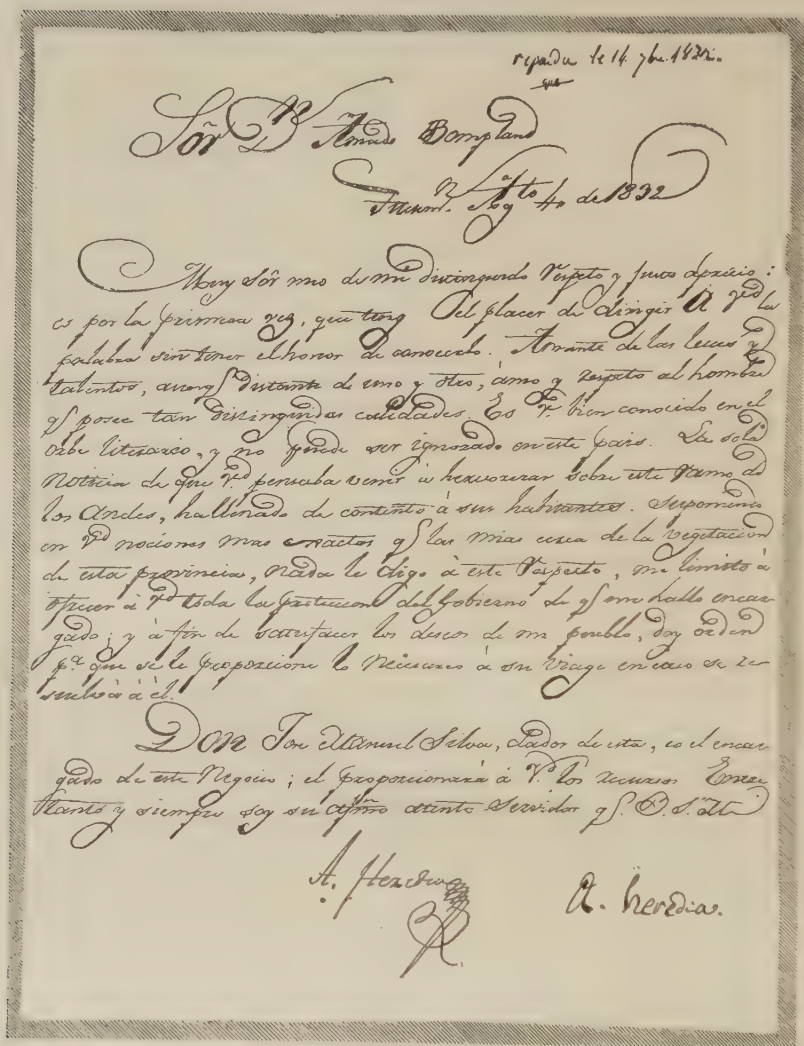 repondu le 14 7bre 1832.
Sôr Dn Amado Bompland
Tucumn. Agto 4. de 1832
Muy Sôr mio de mi distinguido respeto y justo aprecio:
es por la primera vez, que tengo el placer de dirigir á Vmd la
palabra sin tener el honor de conocerlo. Amante de las luces y
talentos, aunq. distante de uno y otro, ámo y respeto al hombre
q. posee tan distinguidas calidades. Es V. bien conocido en el
orbe literario, y no puede ser ignorado en este pais. La sola
noticia de que Vmd pensaba venir á hervorizar sobre este ramo de
los Andes, ha llenado de contento á sus habitantes. Suponiendo
en Vmd nociones mas exactas q. las mias cerca de la vegetacion
de esta provincia, nada le digo á este respecto, me limito à
ofrecer à Vmd toda la proteccion del Gobierno de q. me hallo encar
gado; y à fin de satisfacer los deseos de mi pueblo, doy órden
pa. que se le proporcione lo necesario à su viage en caso se re
suelva à èl.
Don Jose Manuel Silva, dador de esta, es el encar
gado de este Negocio; el proporcionará á V. los recursos Entre
tanto y siempre soy su afmo atento servidor q. B. S. M.
A. Heredia
A. heredia.